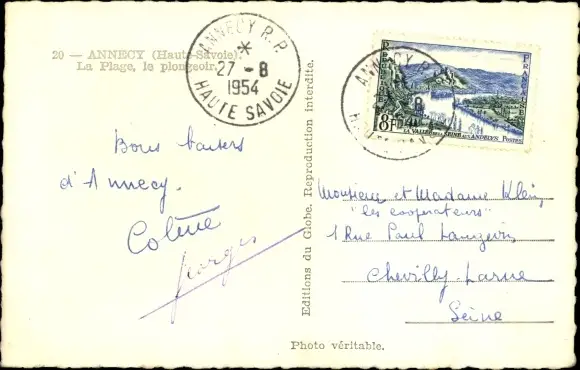 20 — ANNECY (Haute-Savoie).
La Plage, le plongeoir.
ANNECY R.P.
27 - 8
1954
HAUTE SAVOIE
Bons baisers
d'Annecy.
Georges
Editions du Globe. Reproduction interdite.
ANNECY R.P.
8F
LA VALLÉE DE LA SEINE AUX ANDELYS POSTES
Monsieur et Madame Klein
"les coopérateurs"
1 Rue Paul Langevin
Chevilly-Larue
Seine
Photo véritable.